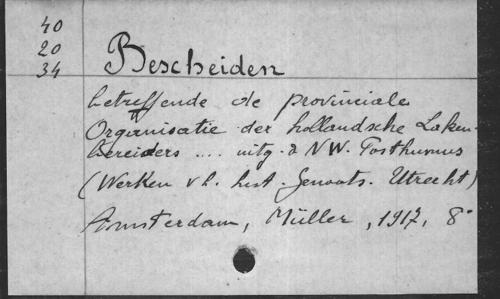 40
20
34
Bescheiden
betreffende de provinciale
Organisatie der hollandsche Laken-
bereiders .... uitg. d NW. Posthumus
(Werken v h. hist. Genoots. Utrecht)
Amsterdam, Müller, 1917, 8°